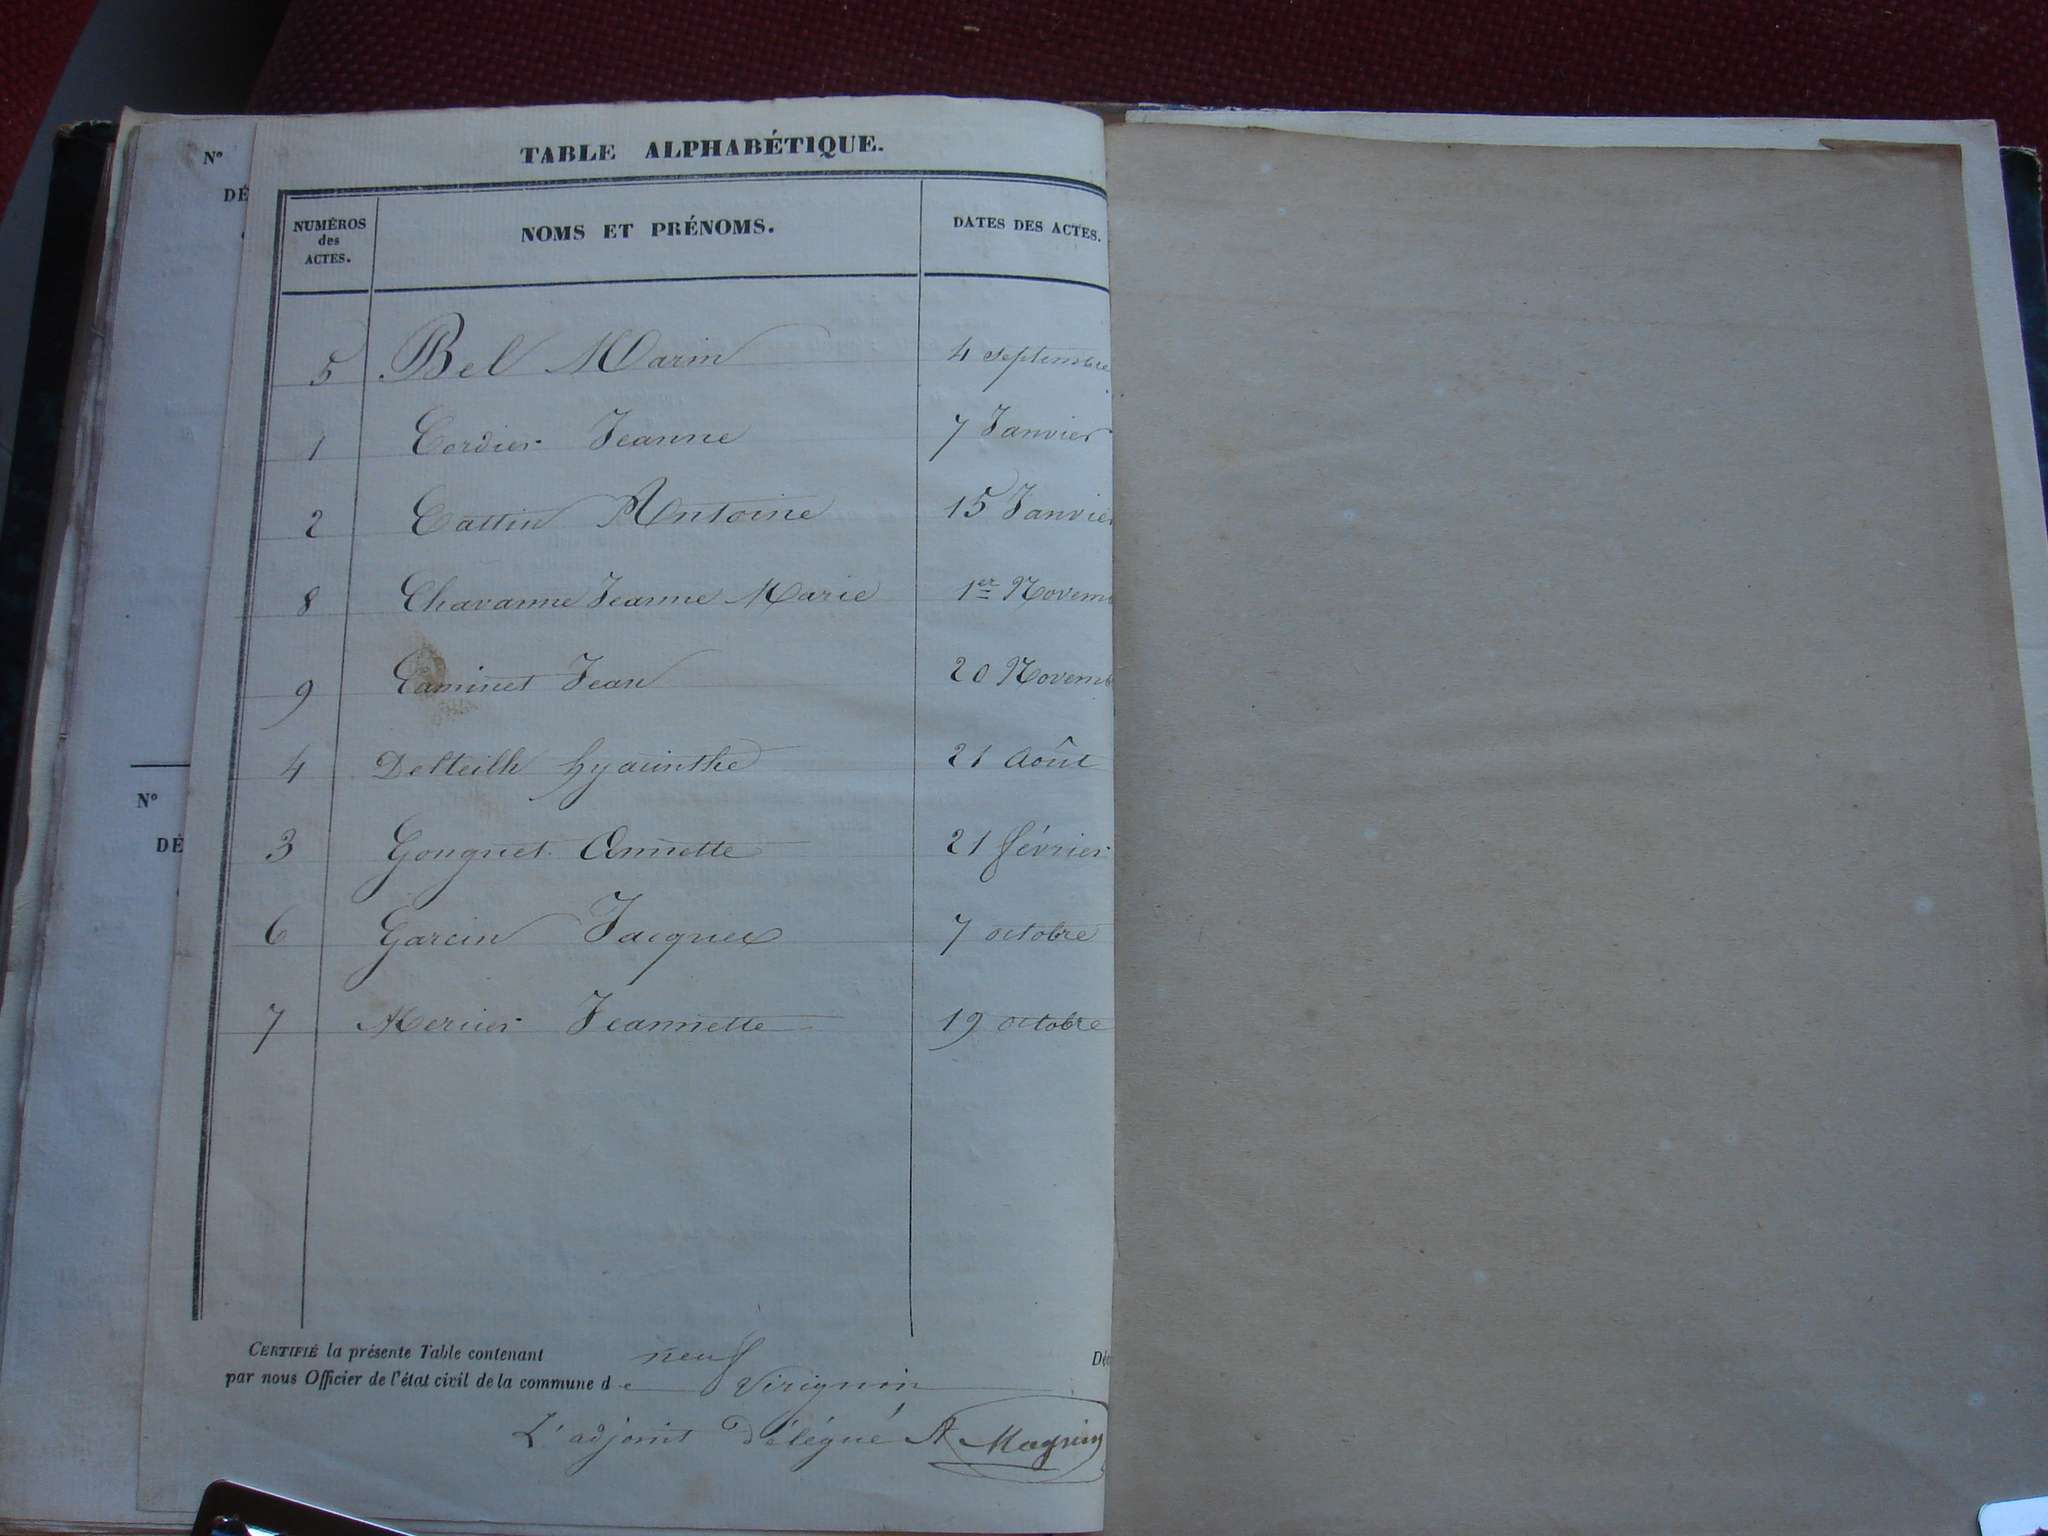 N°
DÉ
N°
DÉ
TABLE ALPHABÉTIQUE.
NUMÉROS des ACTES. NOMS ET PRÉNOMS. DATES DES ACTES.
5 Bel Marin 4 septembre
1 Cordier Jeanne 7 Janvier
2 Cattin Antoine 15 Janvier
8 Chavanne Jeanne Marie 1er Novem
9 Caminet Jean 20 Novemb
4 Delteilh hyacinthe 21 Août
3 Gouguet Annette 21 février
6 Garcin Jacques 7 octobre
7 Mercier Jeannette 19 octobre
CERTIFIÉ la présente Table contenant neuf Déc
par nous Officier de l'état civil de la commune de Virignin
L'adjoint Délégué A Magnin